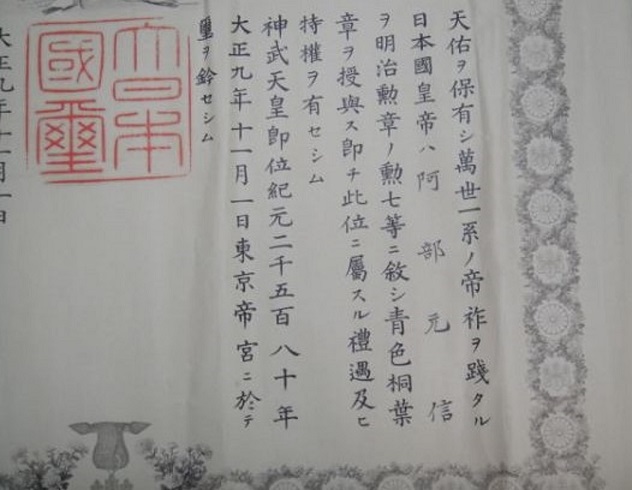 天佑ヲ保有シ萬世一系ノ帝祚ヲ踐タル
日本國皇帝ハ阿部元信
ヲ明治勲章ノ勲七等ニ敍シ青色桐葉
章ヲ授與ス即チ此位ニ屬スル禮遇及ヒ
特權ヲ有セシム
神武天皇即位紀元二千五百八十年
大正九年十一月一日東京帝宮ニ於テ
璽ヲ鈐セシム
大日本
國璽
大正九年十一月一日